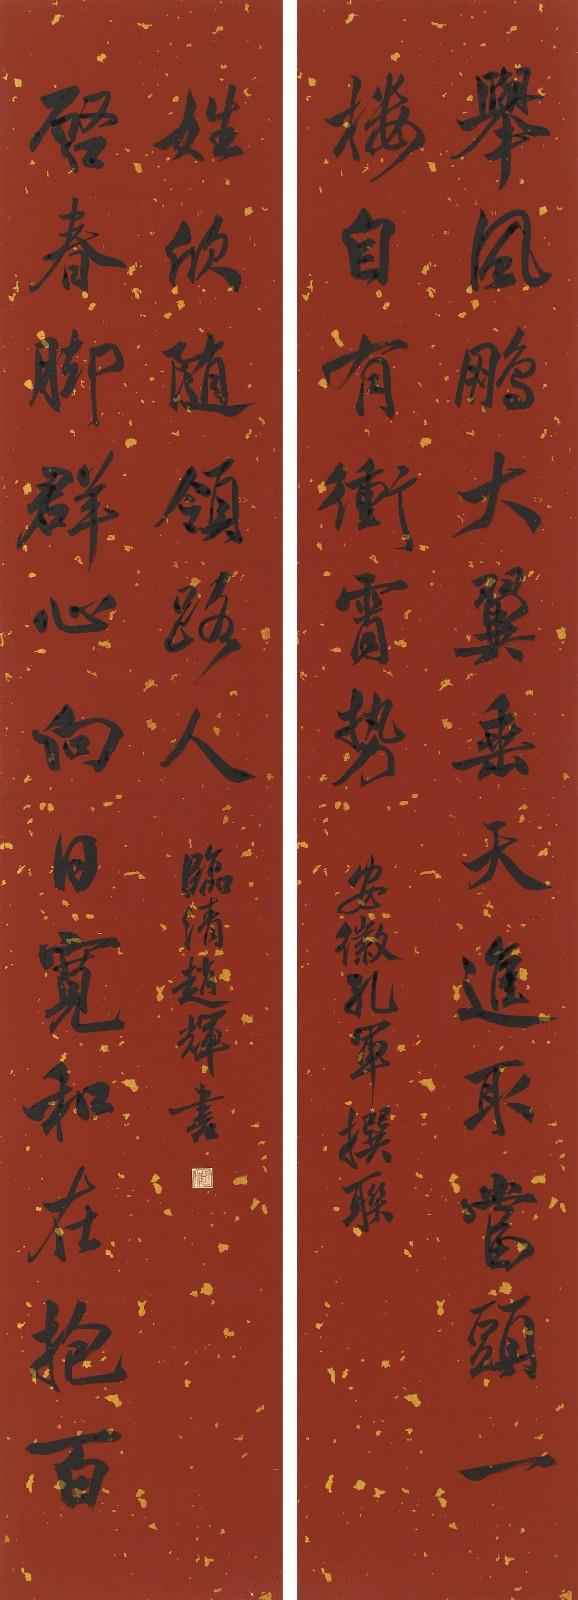 舉風鵬大翼垂天進取當頭一
楼自有衝霄勢
安徽孔軍撰聯
啓春脚群心向日寬和在抱百
姓欣随領路人
臨清趙輝書